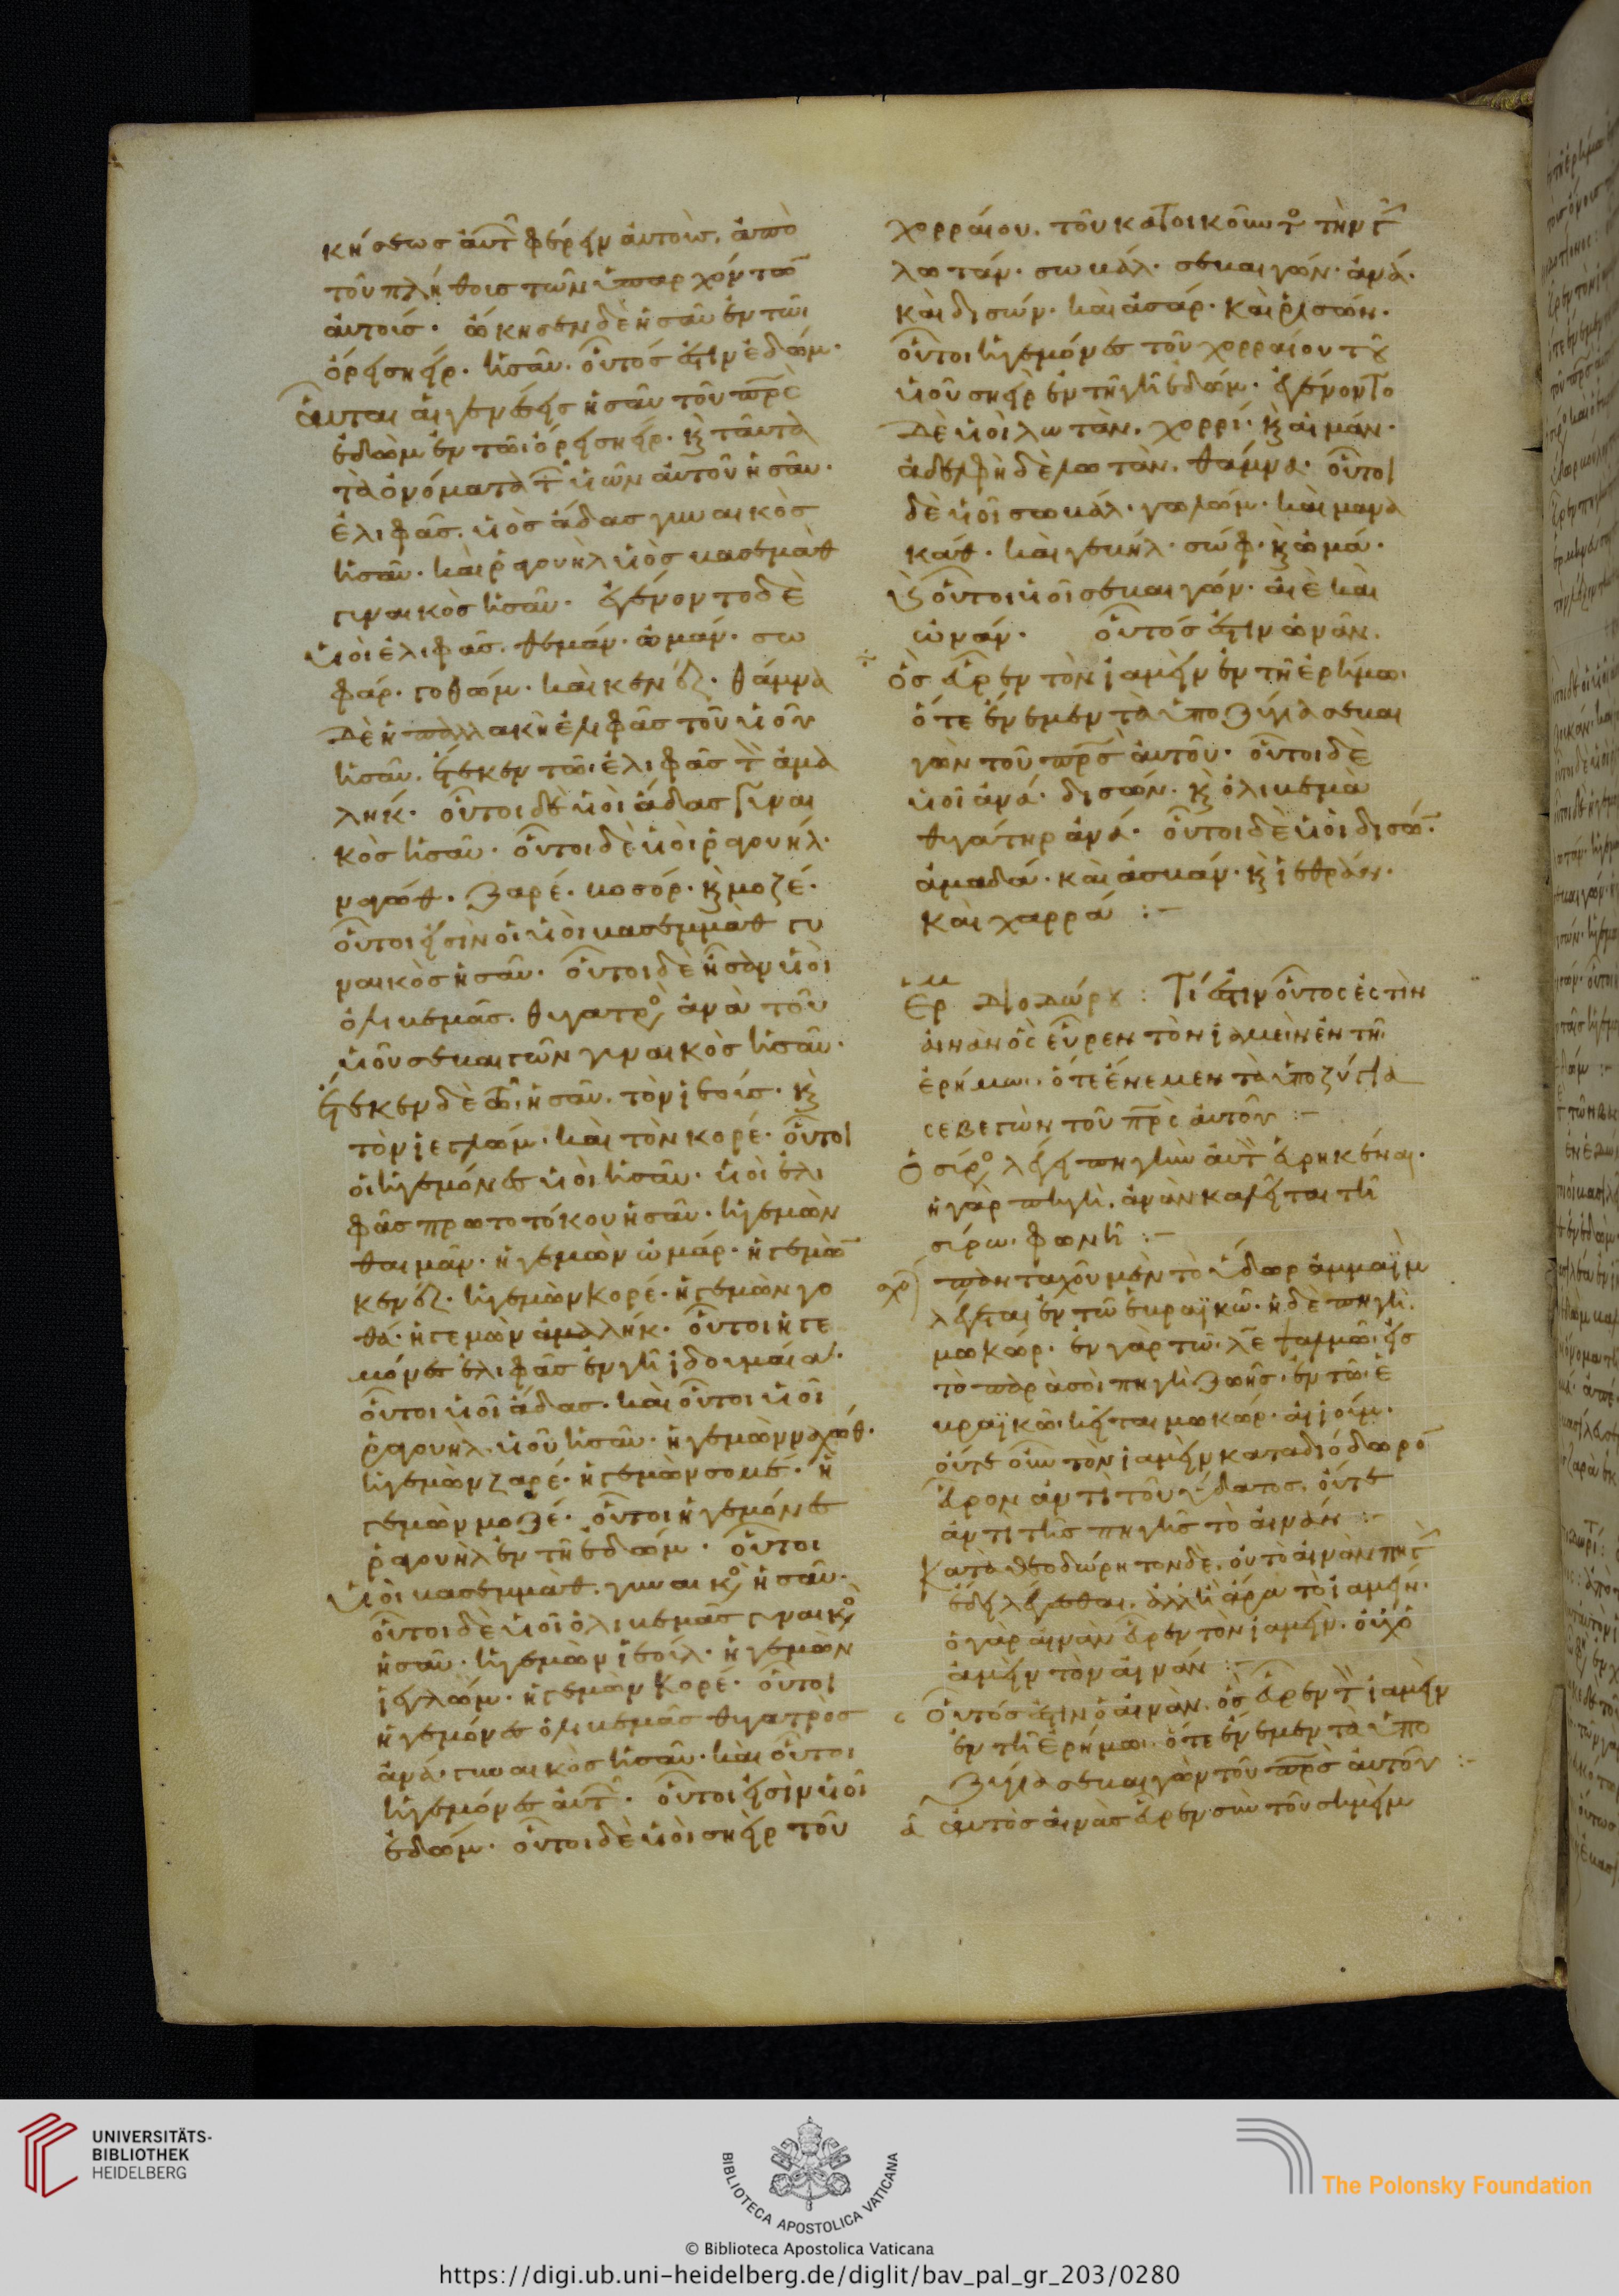 κήσεως αὐτ φέρειν αὐτοὺς, ἀπὸ
τοῦ πλήθους τῶν ὑπαρχόντω
αὐτοῖς. ὤκησεν δὲ ἠσαῦ ἐν τῶι
ὄρει σηείρ. ἠσαῦ. οὗτός ἐστιν ἐδώμ.
αὗται αἱ γενέσεις ἠσαῦ τοῦ πρς
ἐδὼμ ἐν τῶι ὄρει σηείρ. κ ταῦτα
τὰ ὀνόματα τ υἱῶν αὐτοῦ ἠσαῦ.
ἐλιφᾶς. υἱὸς ἄδας γυναικὸς
ἠσαῦ. καὶ ραουηλ υἱὸς μασεμὰθ
γυναικὸς ἠσαῦ. ἐγένοντο δὲ
υἱοὶ ἐλιφᾶς. θεμάν. ὠμάν. σω
φάρ. γοθώμ. καὶ κενέζ. θάμνα
δὲ ἡ παλλακὴ ἐλιφᾶς τοῦ υἱοῦ
ἠσαῦ. ἔτεκεν τῶι ἐλιφᾶς τ ἀμα
λήκ. οὗτοι δὲ υἱοὶ ἄδας γυναι
κὸς ἠσαῦ. οὗτοι δὲ υἱοὶ ραουήλ.
ναώθ. ζαρέ. μοσόρ. κ μοζέ.
οὗτοι εἰσὶν οἱ υἱοὶ μασεμμὰθ γυ
ναικὸς ἠσαῦ. οὗτοι δὲ ἦσαν υἱοὶ
ὀλιβεμᾶς. θυγατρο ἀνὰ τοῦ
υἱοῦ σεβαιγῶν γυναικὸς ἠσαῦ.
ἔτεκεν δὲ τῶ ἠσαῦ. τὸν ἰεούς. κ
τὸν ἰεγλώμ. καὶ τὸν κορέ. οὗτοι
οἱ ἡγεμόνες υἱοὶ ἠσαῦ. υἱοὶ ἐλι
φᾶς πρωτοτόκου ἠσαῦ. ἡγεμὼν
θαιμάν. ἡγεμὼν ὠμάρ. ἡγεμὼ
κενέζ. ἡγεμὼν κορέ. ἡγεμὼν γο
θά. ἡγεμὼν ἀμαλήκ. οὗτοι ἡγε
μόνες ἐλιφᾶς ἐν γῆ ἰδουμαία.
οὗτοι υἱοὶ ἄδας. καὶ οὗτοι υἱοὶ
ραουὴλ υἱοῦ ἠσαῦ. ἡγεμὼν ναχώθ.
ἡγεμὼν ζαρέ. ἡγεμὼν σομέ. ἡ
γεμὼν μοζέ. οὗτοι ἡγεμόνες
ραουὴλ ἐν τῆ ἐδώμ. οὗτοι
υἱοὶ μασεμμὰθ. γυναικο ἠσαῦ.
οὗτοι δὲ υἱοὶ ὀλιβεμᾶς γυναικο
ἠσαῦ. ἡγεμὼν ἰεούλ. ἡγεμὼν
ἰεγλώμ. ἡγεμὼν κορέ. οὗτοι
ἡγεμόνες ὀλιβεμᾶς θυγατρὸς
ἀνά. γυναικὸς ἠσαῦ. καὶ οὗτοι
ἡγεμόνες αὐτ. οὗτοι εἰσὶν υἱοὶ
ἐδώμ. οὗτοι δὲ υἱοὶ σηεὶρ τοῦ
χορραίου. τοῦ κατοικοῦντο τὴν γ
λωτάν. σωβάλ. σεβαιγών. ἀνά.
καὶ δισών. καὶ ἀσάρ. καὶ ρισών.
οὗτοι ἡγεμόνες τοῦ χορραίου τȣ
υἱοῦ σηεὶρ ἐν τῆ γῆ ἐδώμ. ἐγένοντο
δὲ υἱοὶ λωτὰν. χορρί. κ αἱμάν.
ἀδελφὴ δὲ λωτὰν. θάμνα. οὗτοι
δὲ υἱοὶ σωβάλ. γωλώμ. καὶ μανα
κάθ. καὶ γεβήλ. σώφ. κ ὠμά.
κ οὗτοι υἱοὶ σεβαιγών. ἀιὲ καὶ
ὠνάν. οὗτός ἐστιν ὠνᾶν.
ὃς εὗρεν τὸν ἰαμεὶν ἐν τῆ ἐρήμω.
ὅτε ἔνεμεν τὰ ὑποζύγια σεβαι
γὼν τοῦ πρς αὐτοῦ. οὗτοι δὲ
υἱοὶ ἀνά. δισών. κ ὀλιβεμὰ
θυγάτηρ ἀνά. οὗτοι δὲ υἱοὶ δισώ.
ἀμαδά. καὶ ἀσβάν. κ ἰεθράν.
καὶ χαρρά :–
Ερ Διοδώρȣ : Τί ἐστιν οὗτος ἐστὶν
αἰνὰν ὃς εὗρεν τὸν ἰαμεὶν ἐν τῆ
ἐρήμωι. ὅτε ἔνεμεν τὰ ὑποζύγια
σεβεγὼν τοῦ πρς αὐτοῦ :–
Ὁ σύρο λέγει πηγὴν αὐτ εὑρηκέναι.
ἡ γὰρ πηγὴ. ἀνὰν καλεῖται τῆ
σύρω φωνῆ :–
πανταχοῦ μὲν τὸ ὕδωρ ἀμμαῒμ
λέγεται ἐν τῶ ἑβραϊκῶ. ἡ δὲ πηγὴ.
μωκώρ. ἐν γὰρ τῶ λε ψαλμῶ. εἰς
τὸ παρὰ σοὶ πηγὴ ζωῆς. ἐν τῶ ἑ
βραϊκῶ. κεῖται μωκώρ. ἀϊούμ.
οὔτε οὖν τὸν ἰαμεὶν κατὰ διόδωρο
εὗρον ἀντὶ τοῦ ὕδατος. οὔτε
ἀντὶ τῆς πηγῆς τὸ αἰνάν :–
Κατὰ θεοδώρητον δὲ. οὐ τὸ αἰνὰν πηγ
ἔδει λέγεσθαι. ἀλλ᾽ ἢ ἄρα τὸ ἰαμείν.
ὁ γὰρ αἰνὰν εὗρεν τὸν ἰαμείν. οὐχ ὁ
ἰαμεὶν τὸν αἰνάν :–
Οὗτός ἐστιν ὁ αἰνὰν. ὃς εὗρεν τ ἰαμεὶν
ἐν τῆ ἐρήμωι. ὅτε ἔνεμεν τὰ ὑπο
ζύγια σεβαιγὼν τοῦ πρς αὐτοῦ :–
α αὐτὸς αἰνὰς εὗρεν σὺν τοῦσημεὶμ
UNIVERSITÄTS-
BIBLIOTHEK
HEIDELBERG
BIBLIOTECA APOSTOLICA VATICANA
The Polonsky Foundation
© Biblioteca Apostolica Vaticana
https://digi.ub.uni-heidelberg.de/diglit/bav_pal_gr_203/0280